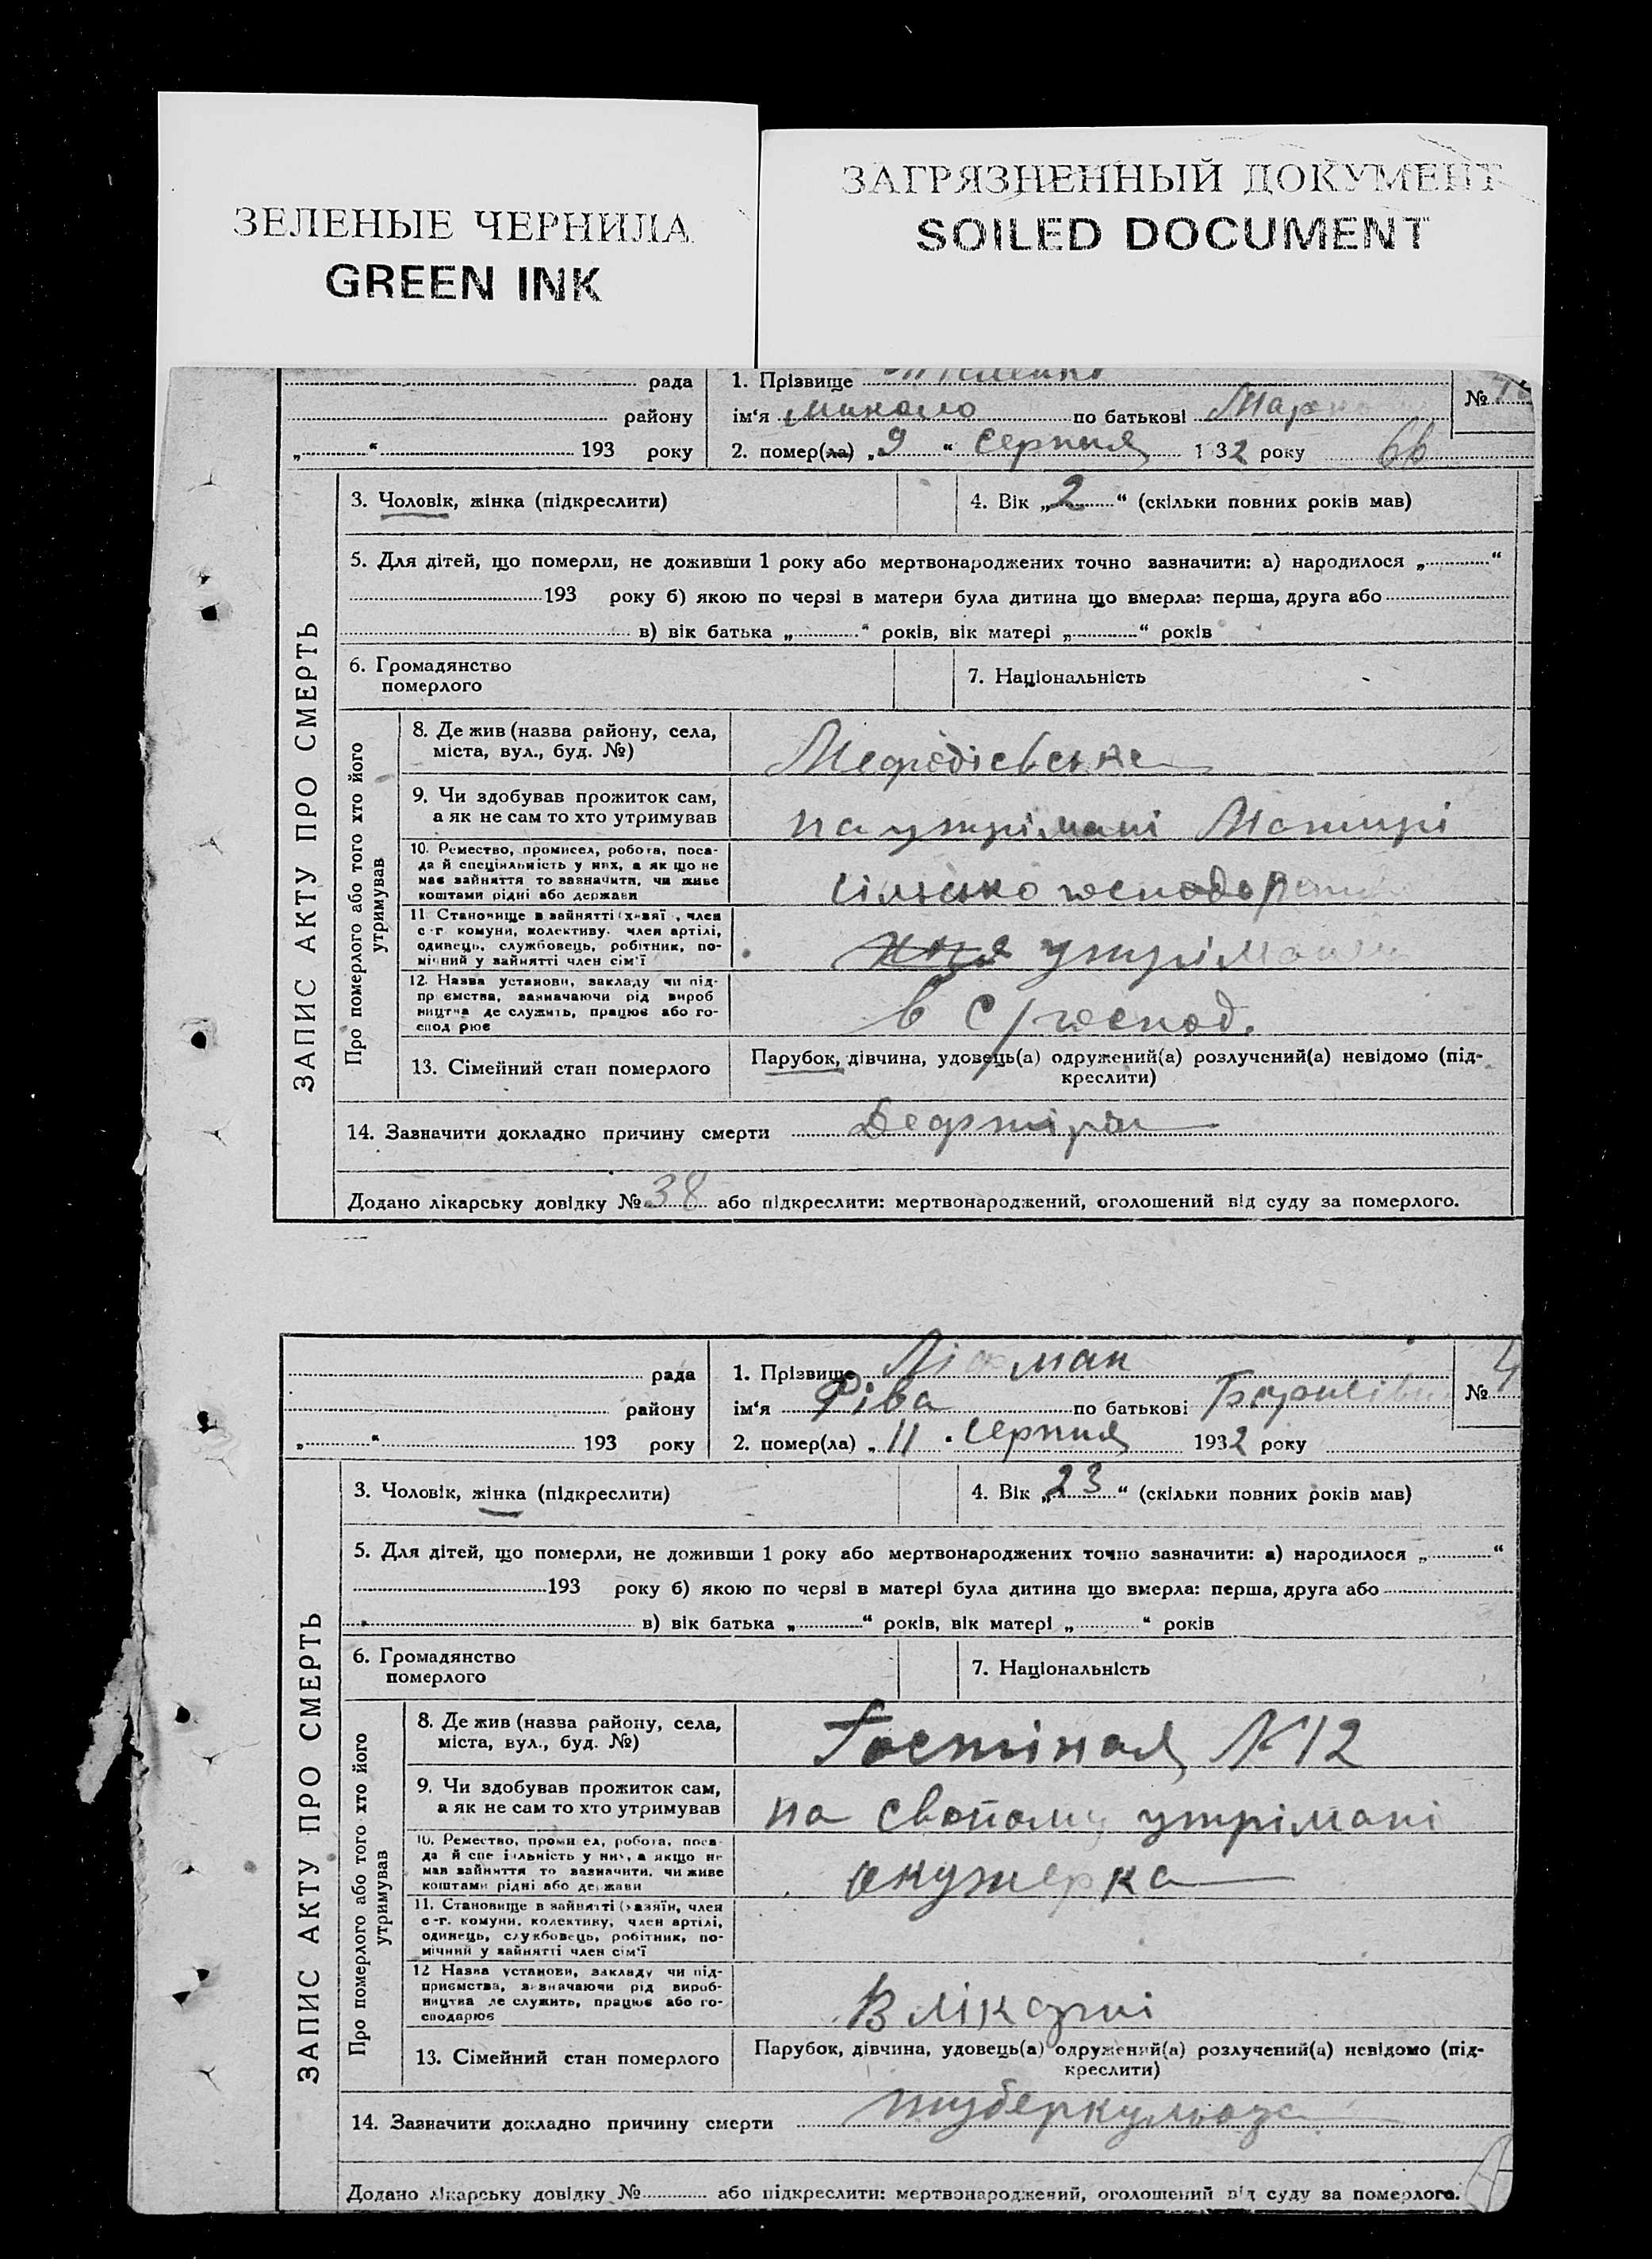 ЗЕЛЕНЫЕ ЧЕРНИЛА
GREEN INK
ЗАГРЯЗНЕННЫЙ ДОКУМЕНТ
SOILED DOCUMENT
рада
1. Прізвище
№
району
ім‘я Микола по батькові
„ “ 193 року
2. помер(ла) „9“ серпня 1932 року
ЗАПИС АКТУ ПРО СМЕРТЬ
3. Чоловік, жінка (підкреслити)
4. Вік „2“ (скільки повних років мав)
5. Для дітей, що померли, не доживши 1 року або мертвонароджених точно зазначити: а) народилося „ “
193 року б) якою по черзі в матери була дитина що вмерла: перша, друга або
в) вік батька „ “ років, вік матері „ “ років
6. Громадянство
померлого
7. Національність
Про померлого або того хто його
утримував
8. Де жив (назва району, села,
міста, вул., буд. №)
Мефодіевське
9. Чи здобував прожиток сам,
а як не сам то хто утримував
на утрімані Матирі
10. Ремество, промисел, робота, поса-
да й спеціяльність у них, а як що не
має зайняття то зазначити, чи живе
коштами рідні або держави
сільсько
11. Становище в зайнятті (хазяї , член
с-г. комуни, колективу, член артілі,
одинець, службовець, робітник, по-
мічний у зайнятті член сім'ї
12. Назва установи, закладу чи під-
пр ємства, зазначаючи рід вироб
ництва де служить, працює або го-
спод рює
в с/господ.
13. Сімейний стан померлого
Парубок, дівчина, удовець(а) одружений(а) розлучений(а) невідомо (під-
креслити)
14. Зазначити докладно причину смерти Дефтірія
Додано лікарську довідку № 38 або підкреслити: мертвонароджений, оголошений від суду за померлого.
рада
1. Прізвище
№ 4
району
ім‘я Ріва по батькові
„ “ 193 року
2. помер(ла) „11 серпня 1932 року
ЗАПИС АКТУ ПРО СМЕРТЬ
3. Чоловік, жінка (підкреслити)
4. Вік „23“ (скільки повних років мав)
5. Для дітей, що померли, не доживши 1 року або мертвонароджених точно зазначити: а) народилося „ “
193 року б) якою по черзі в матері була дитина що вмерла: перша, друга або
в) вік батька „ “ років, вік матері „ “ років
6. Громадянство
померлого
7. Національність
Про померлого або того хто його
утримував
8. Де жив (назва району, села,
міста, вул., буд. №)
Гостіная №12
9. Чи здобував прожиток сам,
а як не сам то хто утримував
на свойому утрімані
10. Ремество, промисел, робота, поса-
да й спеціяльність у них, а якщо не
мав зайняття то зазначити, чи живе
коштами рідні або держави
акушерка
11. Становище в зайнятті (хазяїн, член
с-г. комуни, колективу, член артілі,
одинець, службовець, робітник, по-
мічний у зайнятті член сім'ї
12 Назва установи, закладу чи під-
приємства, зазначаючи рід вироб-
ництва де служить, працює або го-
сподарює
В лікарні
13. Сімейний стан померлого
Парубок, дівчина, удовець(а) одружений(а) розлучений(а) невідомо (під-
креслити)
14. Зазначити докладно причину смерти туберкульоза
Додано лікарську довідку № або підкреслити: мертвонароджений, оголошений від суду за померлого.